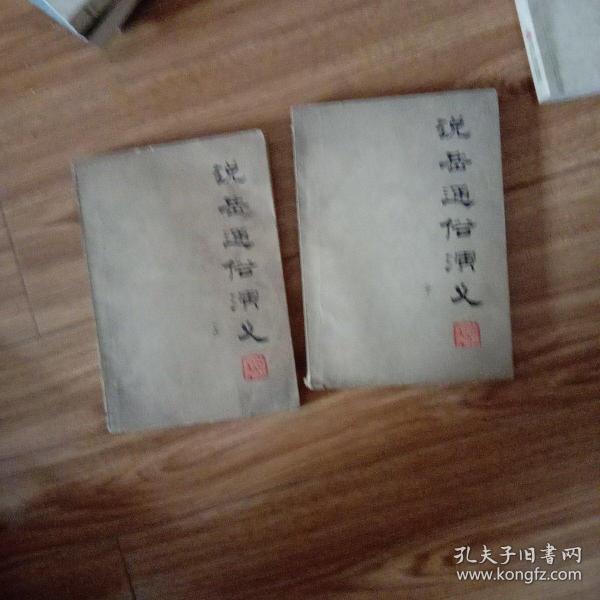 说岳通俗演义
说岳通俗演义
下
孔夫子旧書网
www.kongfz.com